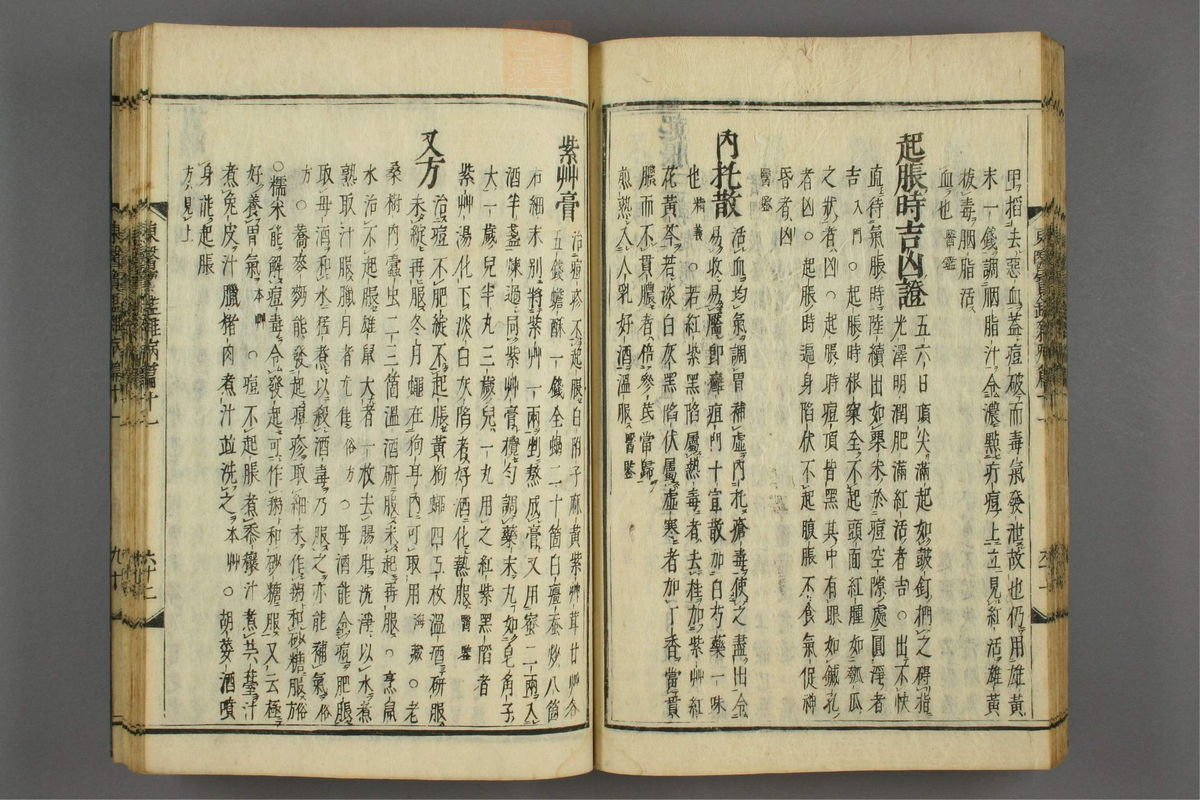 甲搯去惡血蓋痘破令而毒氣發泄故也仍用雄黃
末一錢調胭脂汁令濃點疔痘上立見紅活雄黃
拔毒胭脂活
血也醫鑑
起脹時吉凶證五六日頂尖滿起如皷釘捫之碍指
光澤明潤肥滿紅活者吉○出不快
直待氣脹時陸續出如粟米於痘空隙處圓淨者
吉入門○起脹時根窠全不起頭面紅腫如瓠瓜
之狀者凶○起脹時痘頂皆黑其中有眼如鍼孔
者凶○起脹時遍身陷伏不起腹脹不食氣促神
昏者凶
醫鑑
內托散活血均氣調胃補虛內托瘡毒使之盡出令
易收易靨卽癰疽門十宣散加白芍藥一味
也精義○若紅紫黑陷屬熱毒者去桂加紫艸紅
花黃芩若淡白灰黑陷伏屬虛寒者加丁香當貫
膿而不貫膿者倍參芪當歸
煎熟入人乳好酒溫服醫鑑
紫艸膏治痘疹不起脹白附子麻黃紫艸茸甘艸各
五錢蟾酥一錢全蝎二十箇白殭蚕炒八箇
右細末別將紫艸一兩剉熬成膏又用蜜二兩入
酒半盞煉過同紫艸膏攪勻調藥末丸如皂角子
大一歲兒半丸三歲兒一丸用之紅紫黑陷者
紫艸湯化下淡白灰陷者好酒化熱服醫鑑
又方治痘不肥綻不起脹黃狗蠅四五枚溫酒硏服
未綻再服冬月蠅在狗耳內可取用海藏○老
桑樹內蠹虫二三箇溫酒硏服未起再服○烹鼠
水治不起脹雄鼠大者一枚去腸肚洗淨以水煮
熟取汁服臘月者尤佳俗方○母酒能令痘肥脹
取母酒和水猛煮以殺酒毒乃服之亦能補氣俗
方○蕎麥麪能發起痘疹取細末作粥和砂糖服俗
○糯米能解痘毒令發起可作粥和砂糖服又云極
好養胃氣本艸○痘不起脹煮黍穰汁煮共薹汁
煮兔皮汁臘猪肉煮汁並洗之本艸○胡荽酒噴
身能起脹
方見上
東醫寶鑑雜病篇十一